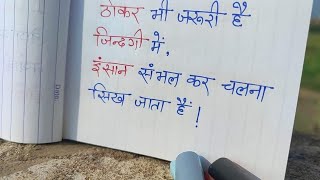 ठोकर भी जरूरी है
जिन्दगी में,
इंसान संभल कर चलना
सिख जाता हैं!